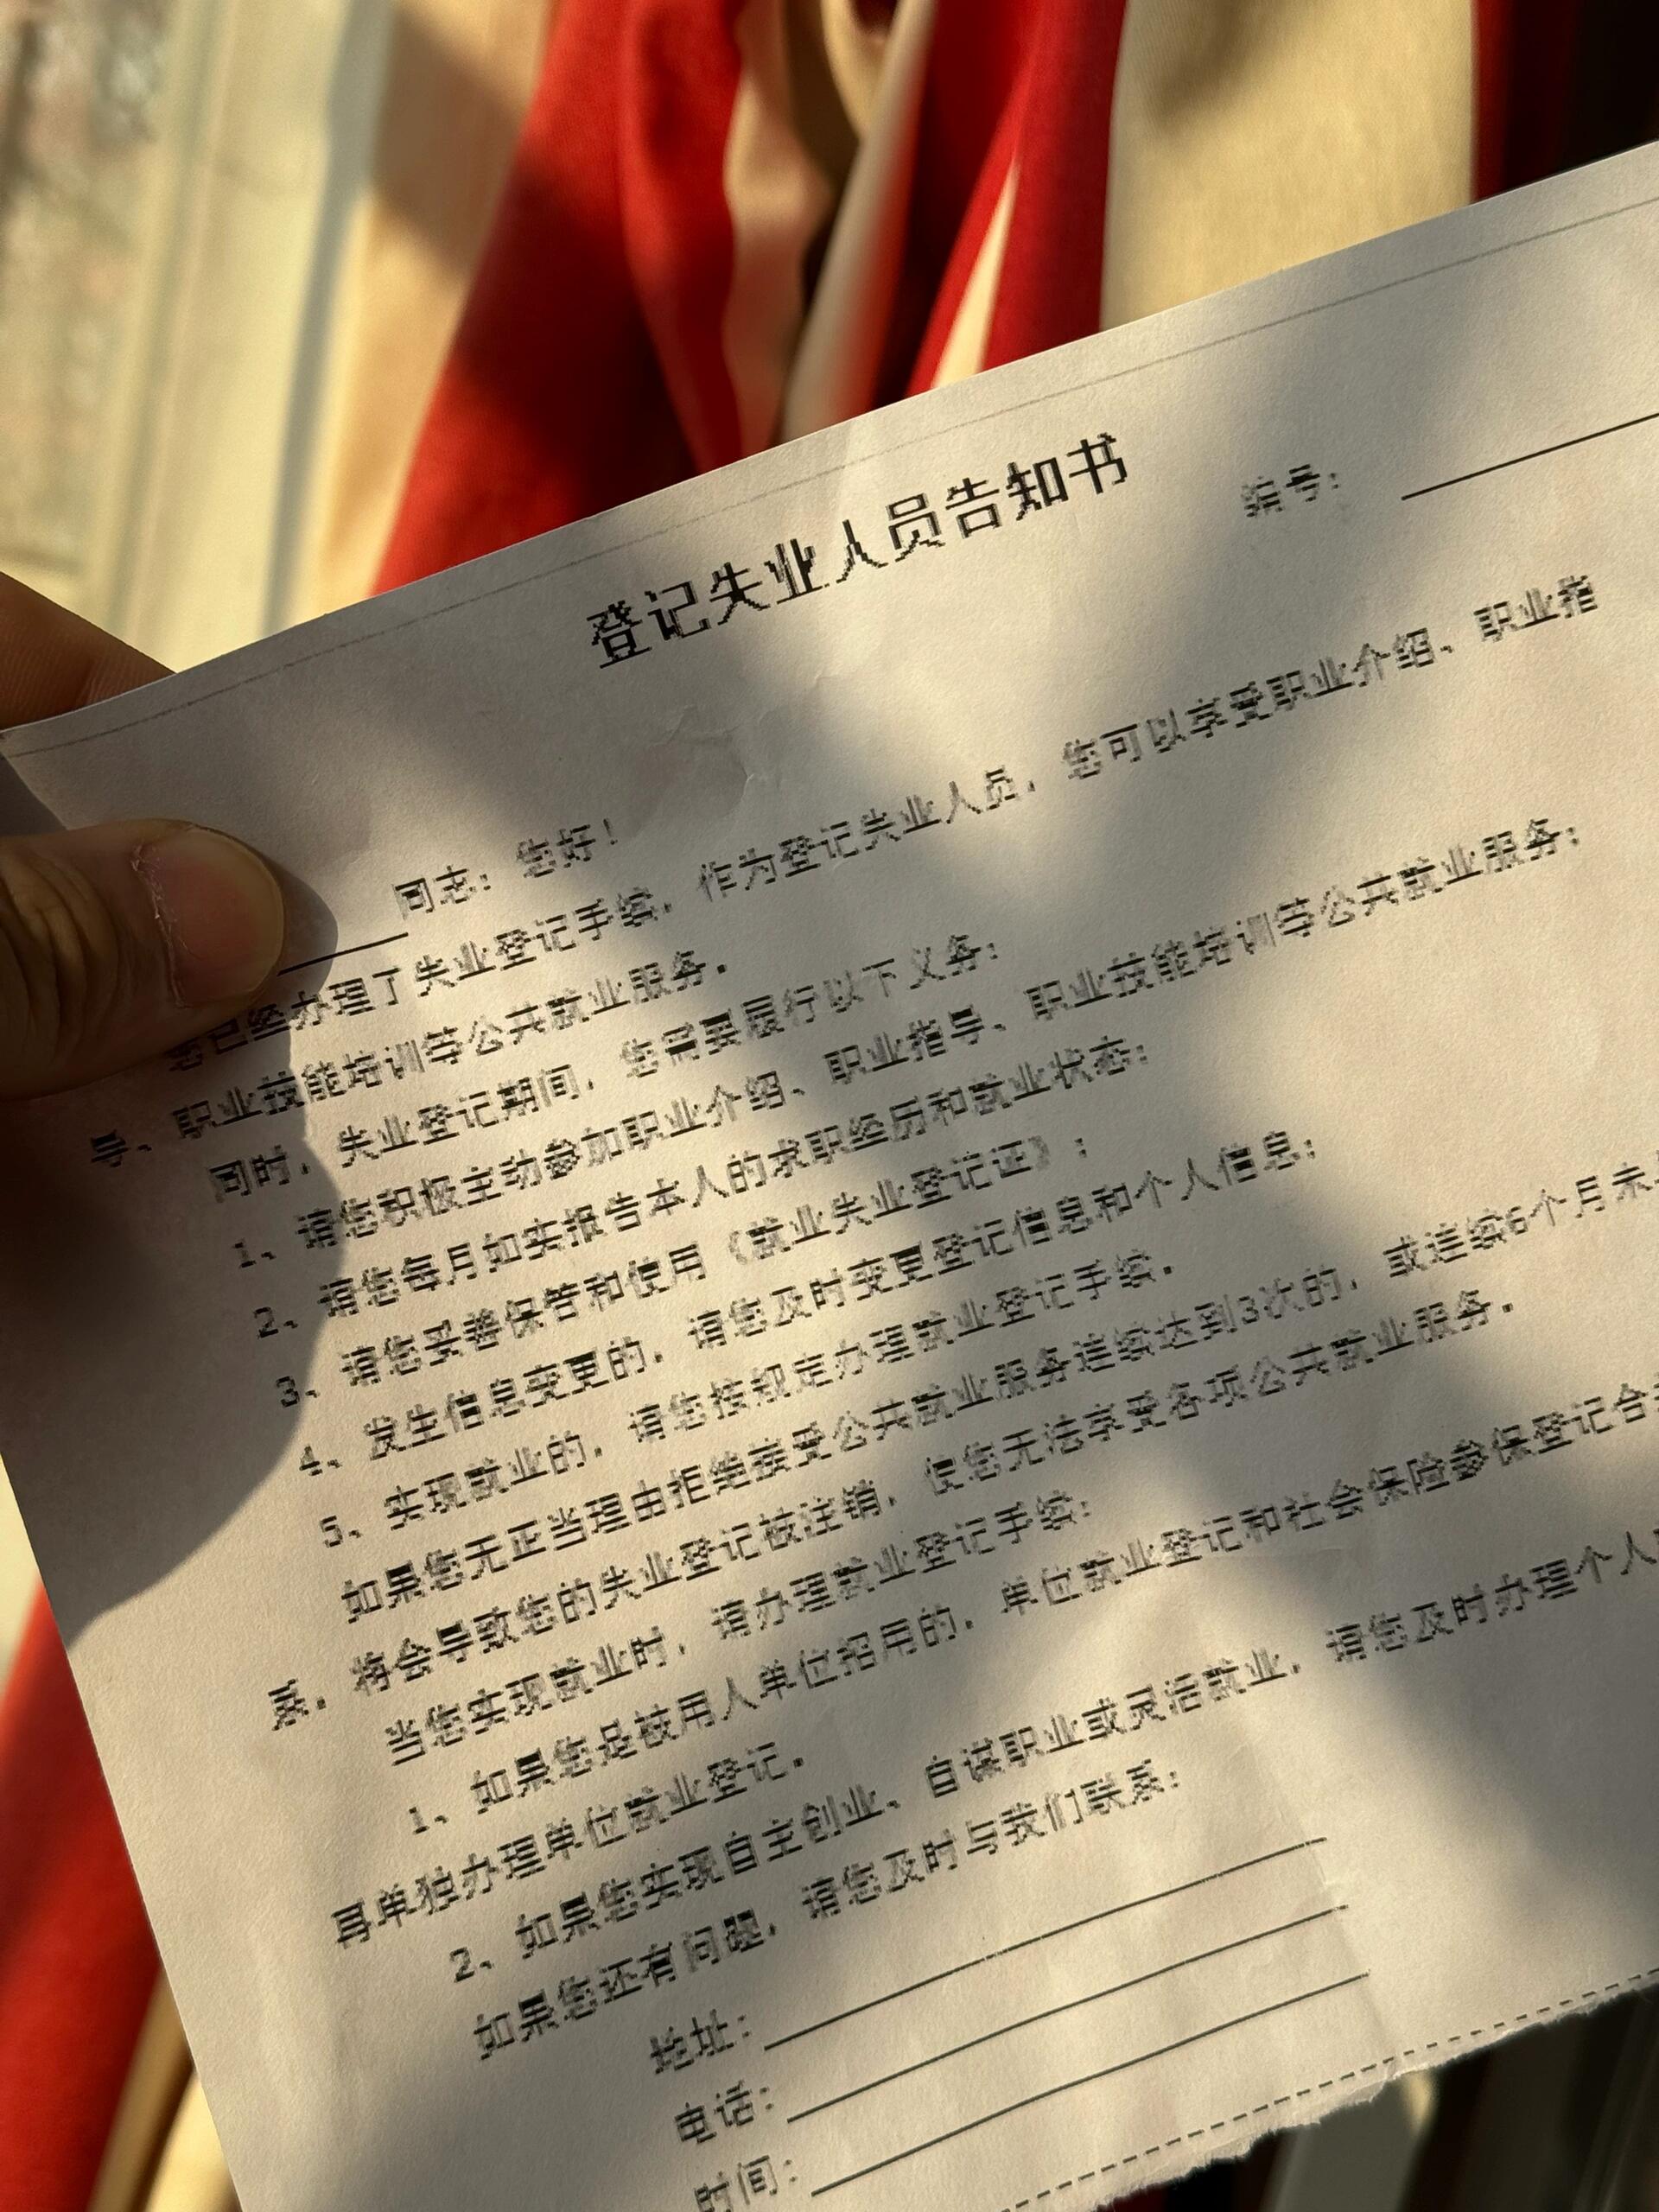 登记失业人员告知书
编号:
同志: 您好!
您已经办理了失业登记手续, 作为登记失业人员, 您可以享受职业介绍、职业指
导、职业技能培训等公共就业服务.
同时, 失业登记期间, 您需要履行以下义务:
1、请您积极主动参加职业介绍、职业指导、职业技能培训等公共就业服务;
2、请您每月如实报告本人的求职经历和就业状态;
3、请您妥善保告和使用《就业失业登记证》;
4、发生信息变更的, 请您及时变更登记信息和个人信息;
5、实现就业的, 请您按规定办理就业登记手续.
如果您无正当理由拒绝接受公共就业服务连续达到3次的, 或连续6个月未
系, 将会导致您的失业登记被注销, 使您无法享受各项公共就业服务.
当您实现就业时, 请办理就业登记手续:
1、如果您是被用人单位招用的, 单位就业登记和社会保险参保登记合
再单独办理单位就业登记.
2、如果您实现自主创业、自谋职业或灵活就业, 请您及时办理个人
如果您还有问题, 请您及时与我们联系:
地址:
电话:
时间: